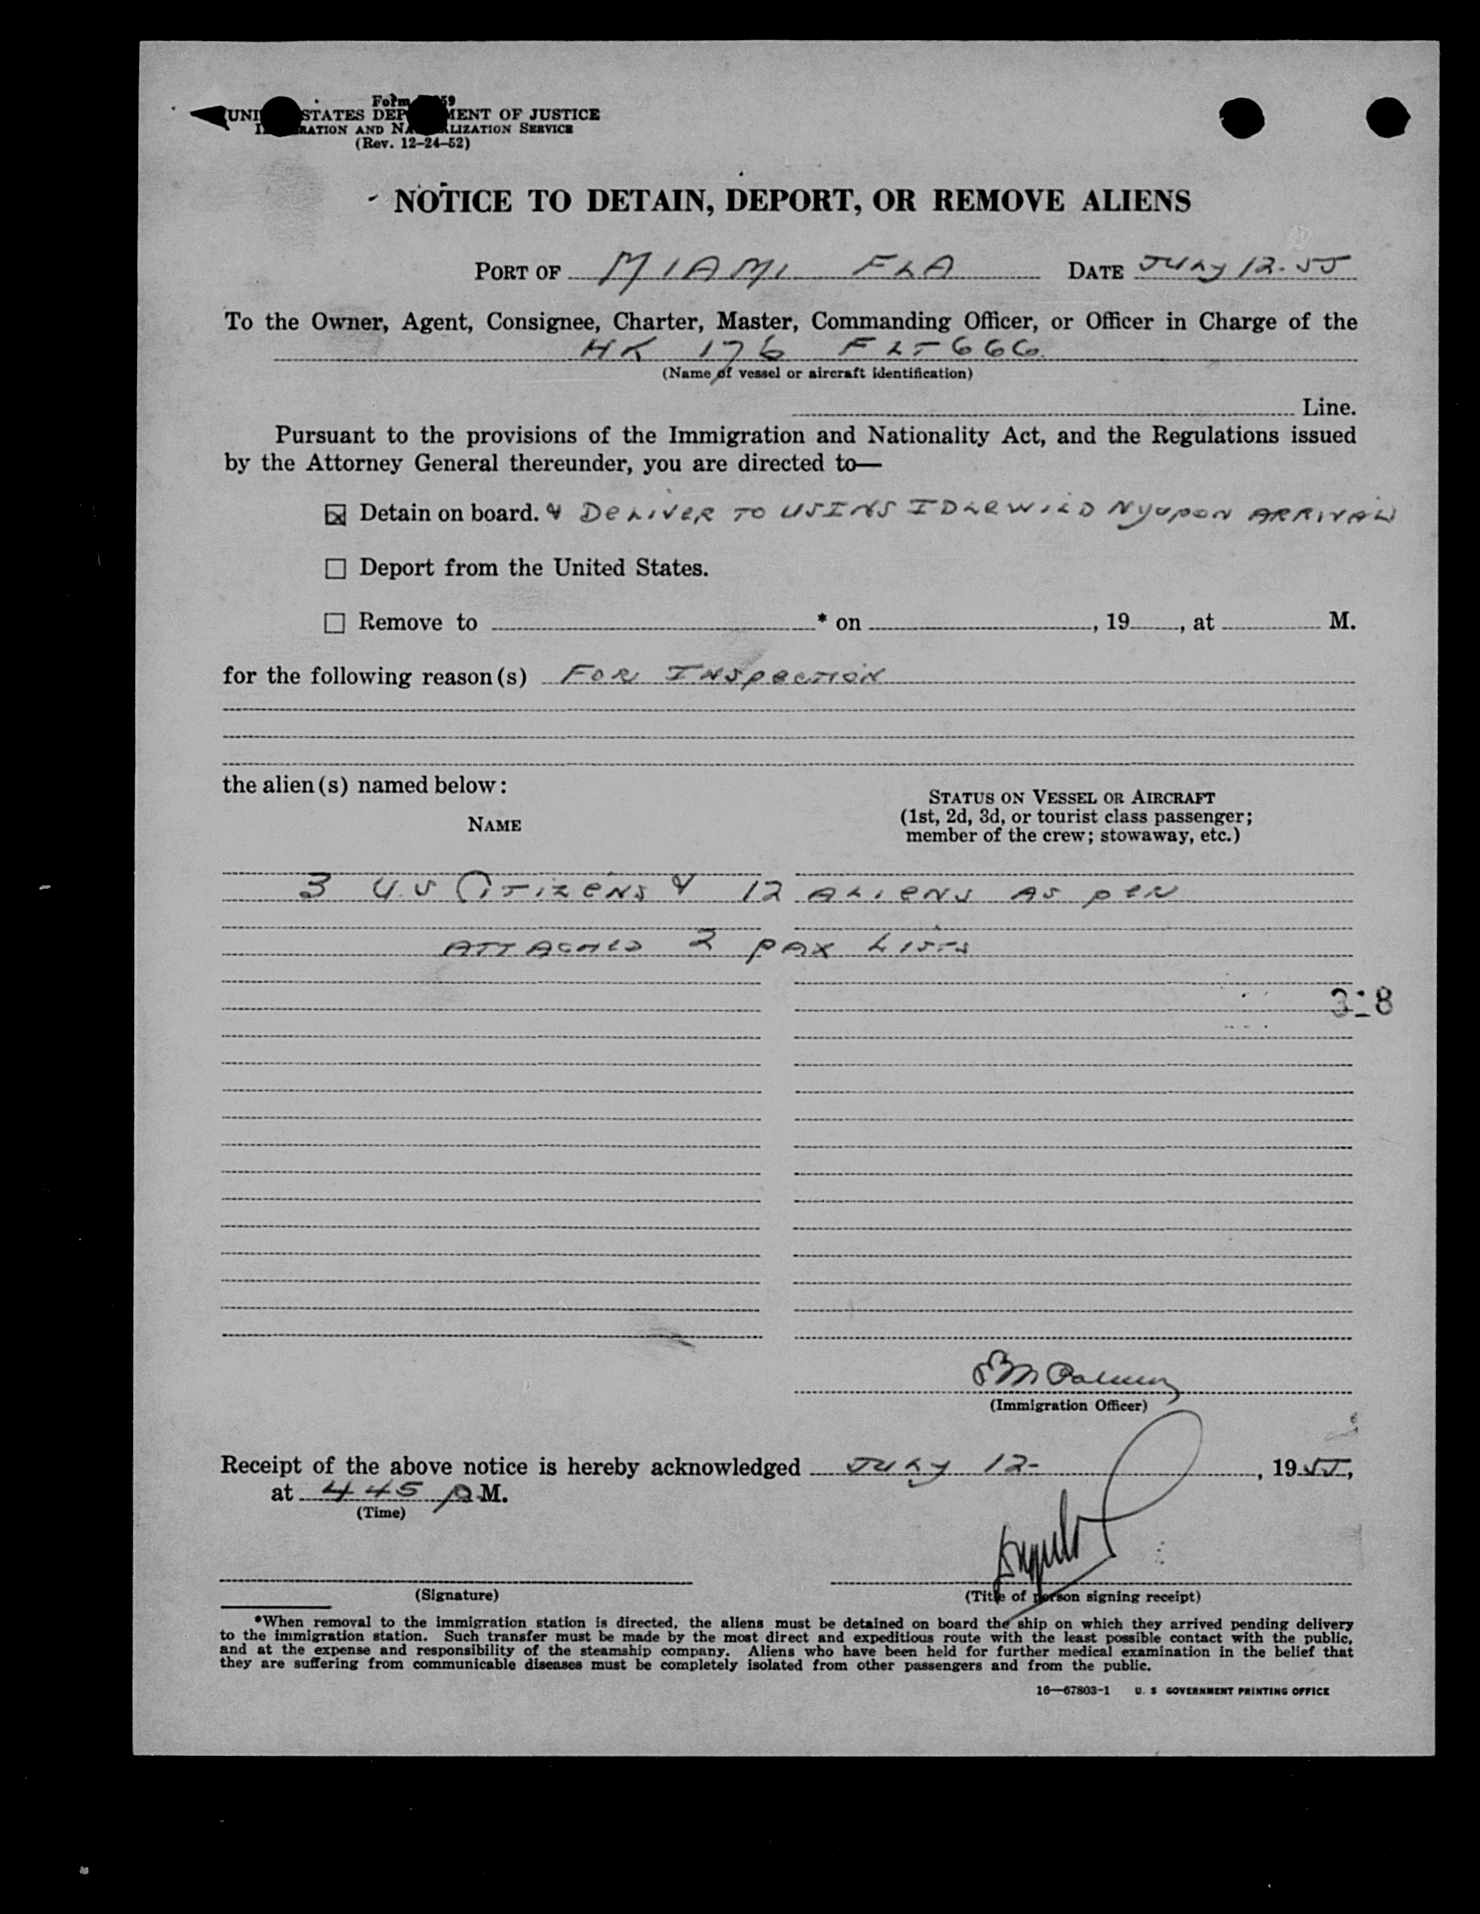 Form 259
UNITED STATES DEPARTMENT OF JUSTICE
IMMIGRATION AND NATURALIZATION SERVICE
(Rev. 12-24-52)
NOTICE TO DETAIN, DEPORT, OR REMOVE ALIENS
PORT OF MIAMI FLA DATE July 12-55
To the Owner, Agent, Consignee, Charter, Master, Commanding Officer, or Officer in Charge of the
HK 176 FLT-666
(Name of vessel or aircraft identification)
Line.
Pursuant to the provisions of the Immigration and Nationality Act, and the Regulations issued
by the Attorney General thereunder, you are directed to—
☒ Detain on board. & Deliver to USINS Idlewild NY upon arrival
☐ Deport from the United States.
☐ Remove to * on , 19 , at M.
for the following reason(s) For Inspection
the alien(s) named below:
NAME
STATUS ON VESSEL OR AIRCRAFT
(1st, 2d, 3d, or tourist class passenger;
member of the crew; stowaway, etc.)
3 U.S Citizens & 12 aliens as per
attached 2 pax lists
(Immigration Officer)
Receipt of the above notice is hereby acknowledged July 12- , 1955,
at 445 P M.
(Time)
(Signature)
(Title of person signing receipt)
*When removal to the immigration station is directed, the aliens must be detained on board the ship on which they arrived pending delivery
to the immigration station. Such transfer must be made by the most direct and expeditious route with the least possible contact with the public,
and at the expense and responsibility of the steamship company. Aliens who have been held for further medical examination in the belief that
they are suffering from communicable diseases must be completely isolated from other passengers and from the public.
16—67803-1 U. S GOVERNMENT PRINTING OFFICE